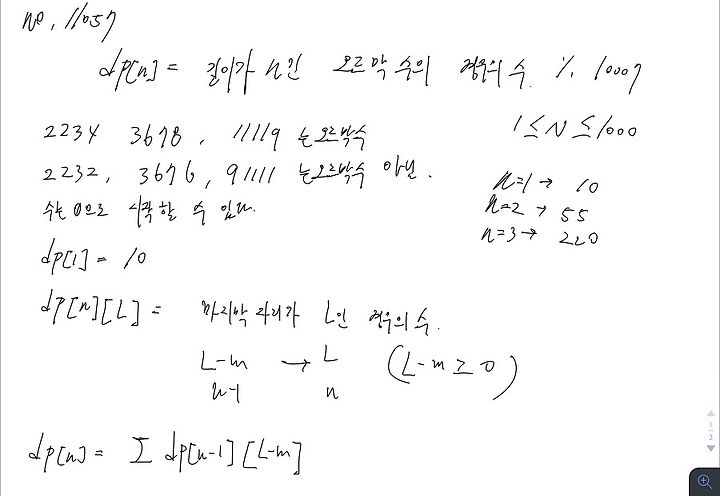 no. 11057
dp[n] = 길이가 n인 오르막 수의 경우의 수 % 10007
1 ≤ N ≤ 1000
2234 3678, 11119 는 오르막수
2232, 3676, 91111 는 오르막수 아님.
수는 0으로 시작할 수 있다.
n=1 → 10
n=2 → 55
n=3 → 220
dp[1] = 10
dp[n][L] = 마지막 자리가 L인 경우의 수.
L-m → L (L-m ≥ 0)
n-1 n
dp[n] = Σ dp[n-1][L-m]
1
2